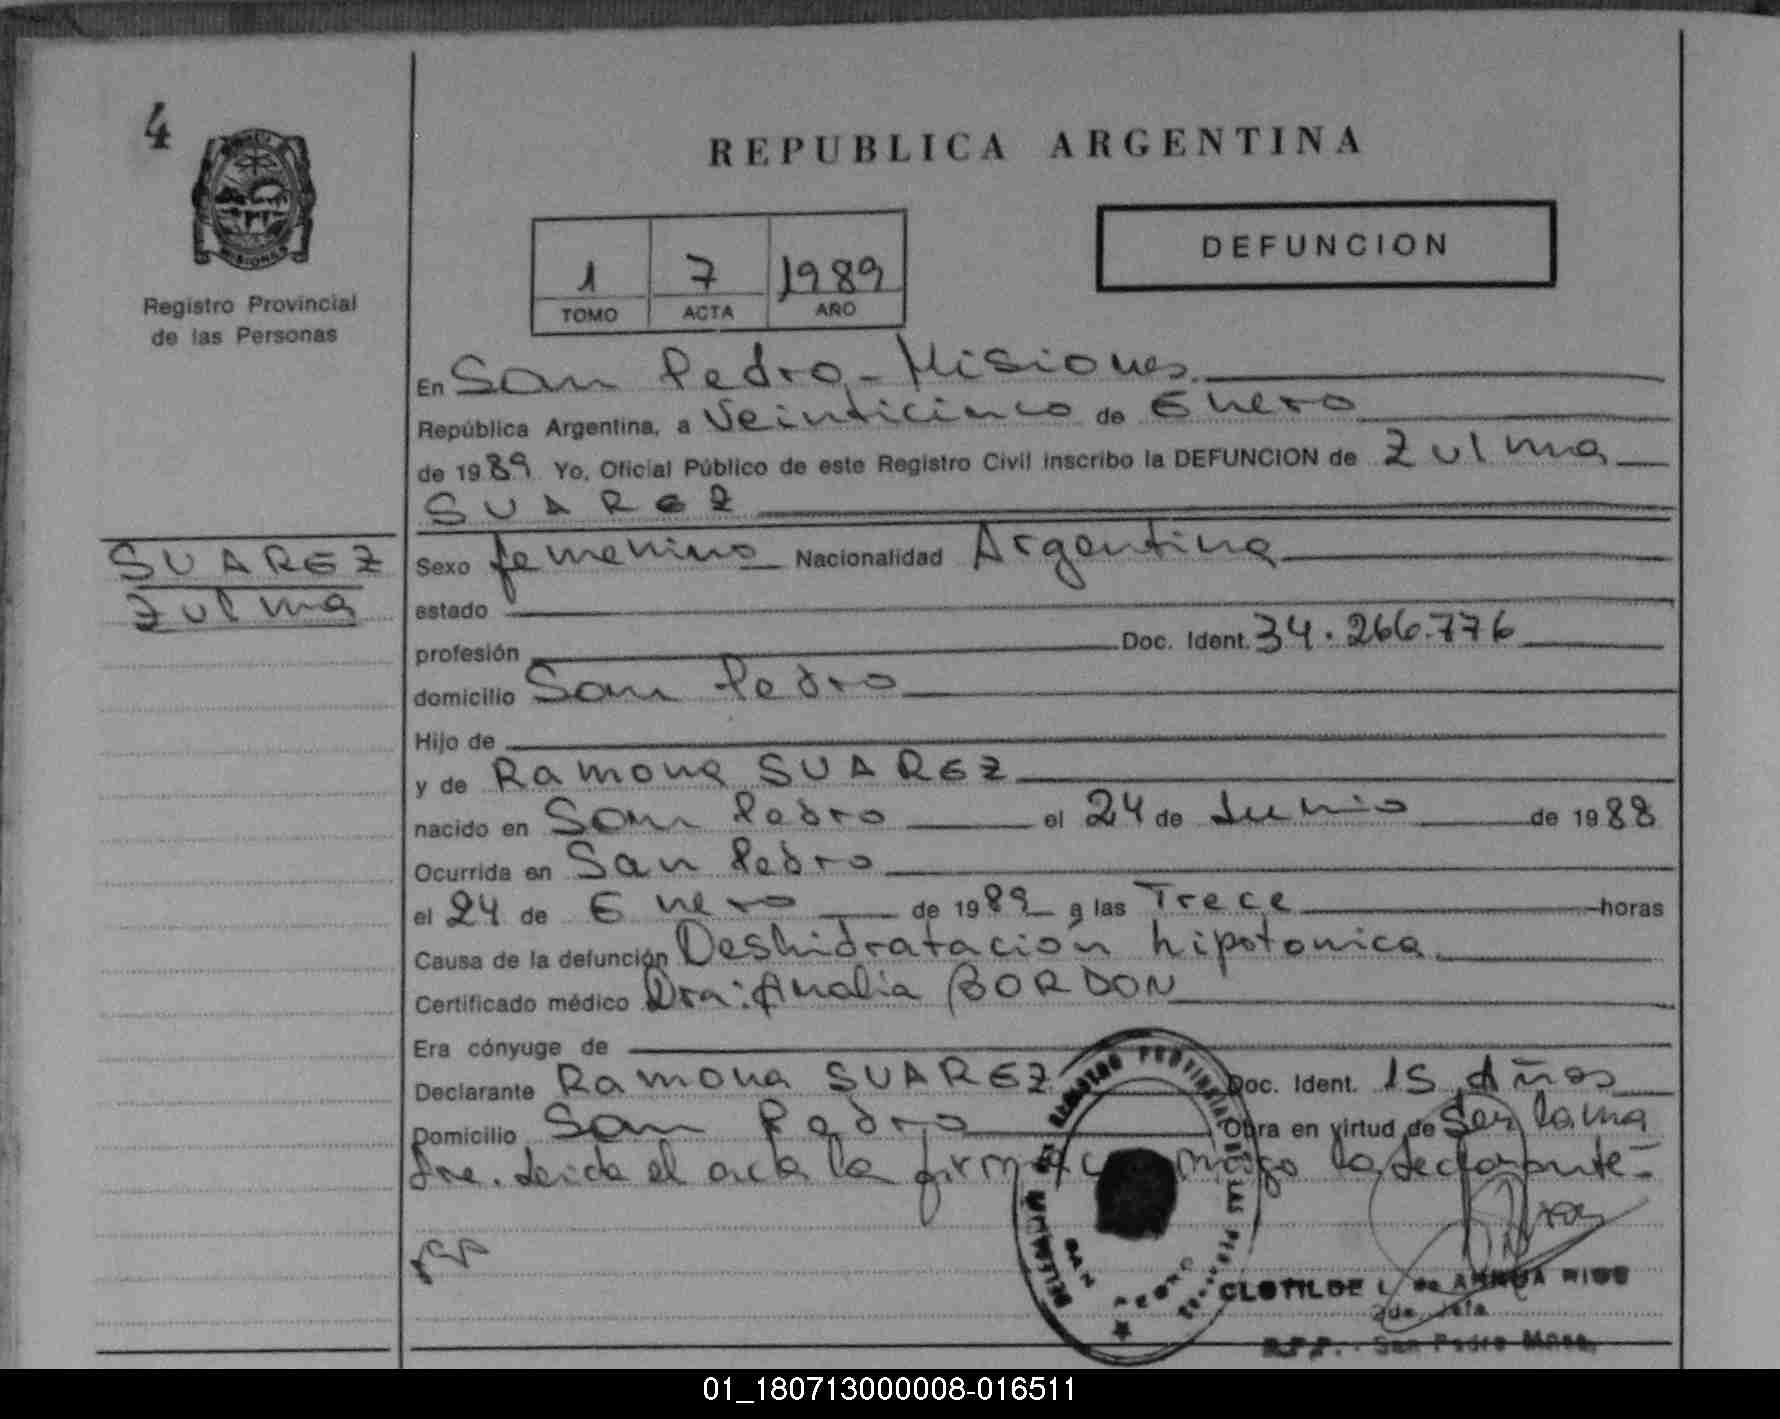 4
Registro Provincial
de las Personas
REPUBLICA ARGENTINA
DEFUNCION
1 7 1989
TOMO ACTA AÑO
En San Pedro - Misiones
República Argentina, a Veinticinco de Enero
de 1989 Yo, Oficial Público de este Registro Civil inscribo la DEFUNCION de Zulma
SUAREZ
SUAREZ
Zulma
Sexo femenino Nacionalidad Argentina
estado
profesión Doc. Ident. 34.266.776
domicilio San Pedro
Hijo de
y de Ramona SUAREZ
nacido en San Pedro el 24 de Junio de 1988
Ocurrida en San Pedro
el 24 de Enero de 1989 a las Trece horas
Causa de la defunción Deshidratación hipotonica
Certificado médico Dra: Analia BORDON
Era cónyuge de
Declarante Ramona SUAREZ Doc. Ident. 15 Años
Domicilio San Pedro Obra en virtud de Ser la ma
dre. Leida el acta la firma conmigo la declarante.-
REGISTRO PROVINCIAL DE LAS PERSONAS
SAN PEDRO
CLOTILDE L. de
2da. Jefa
R.P.P. - San Pedro Mnes.
01_180713000008-016511